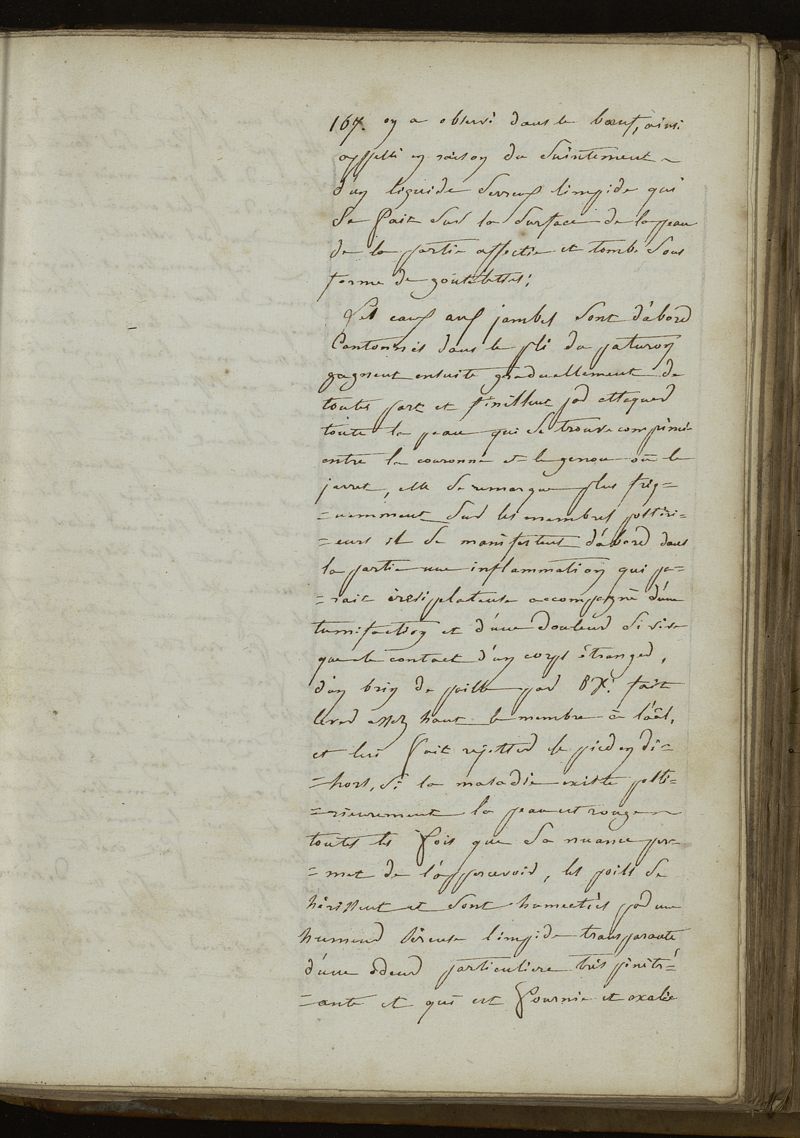 167. on a observé dans le bœuf, ainsi
appellé en raison du Suintement ~
d'un liquide Serreux limpide qui
Se fait Sur la Surface de la peau
de la partie affectée et tombe Sous
forme de goutelettes;
Les eaux aux jambes Sont d'abord
Cantonnés dans le pli du paturon
gagnent ensuite graduellement de
toutes part et finissent par attaquer
toute la peau qui Se trouve comprise
entre la couronne et le genou où le
jarret, elle Se remarque plus fréq=
=uemment Sur les membres postéri=
=eurs il Se manifestent d'abord dans
la partie une inflammation qui pa=
=rait érésiplateuse accompagné d'une
tumifaction et d'une douleur Si vive
que le contact d'un corps étranger,
d'un brin de paille par Ex. fait
lever assez haut le membre à l'âal,
et lui fait rejetter le pied en dé=
=hors, Si la maladie existe posté=
=rieurement la peau est rouge ~
toutes les fois que Sa nuance per=
=met de l'appercevoir, les poils Se
hérissent et Sont humectés par une
humeur Séreuse limpide transparante
d'une odeur particuliere très pénétr=
=ante et qui est fournie et exalée